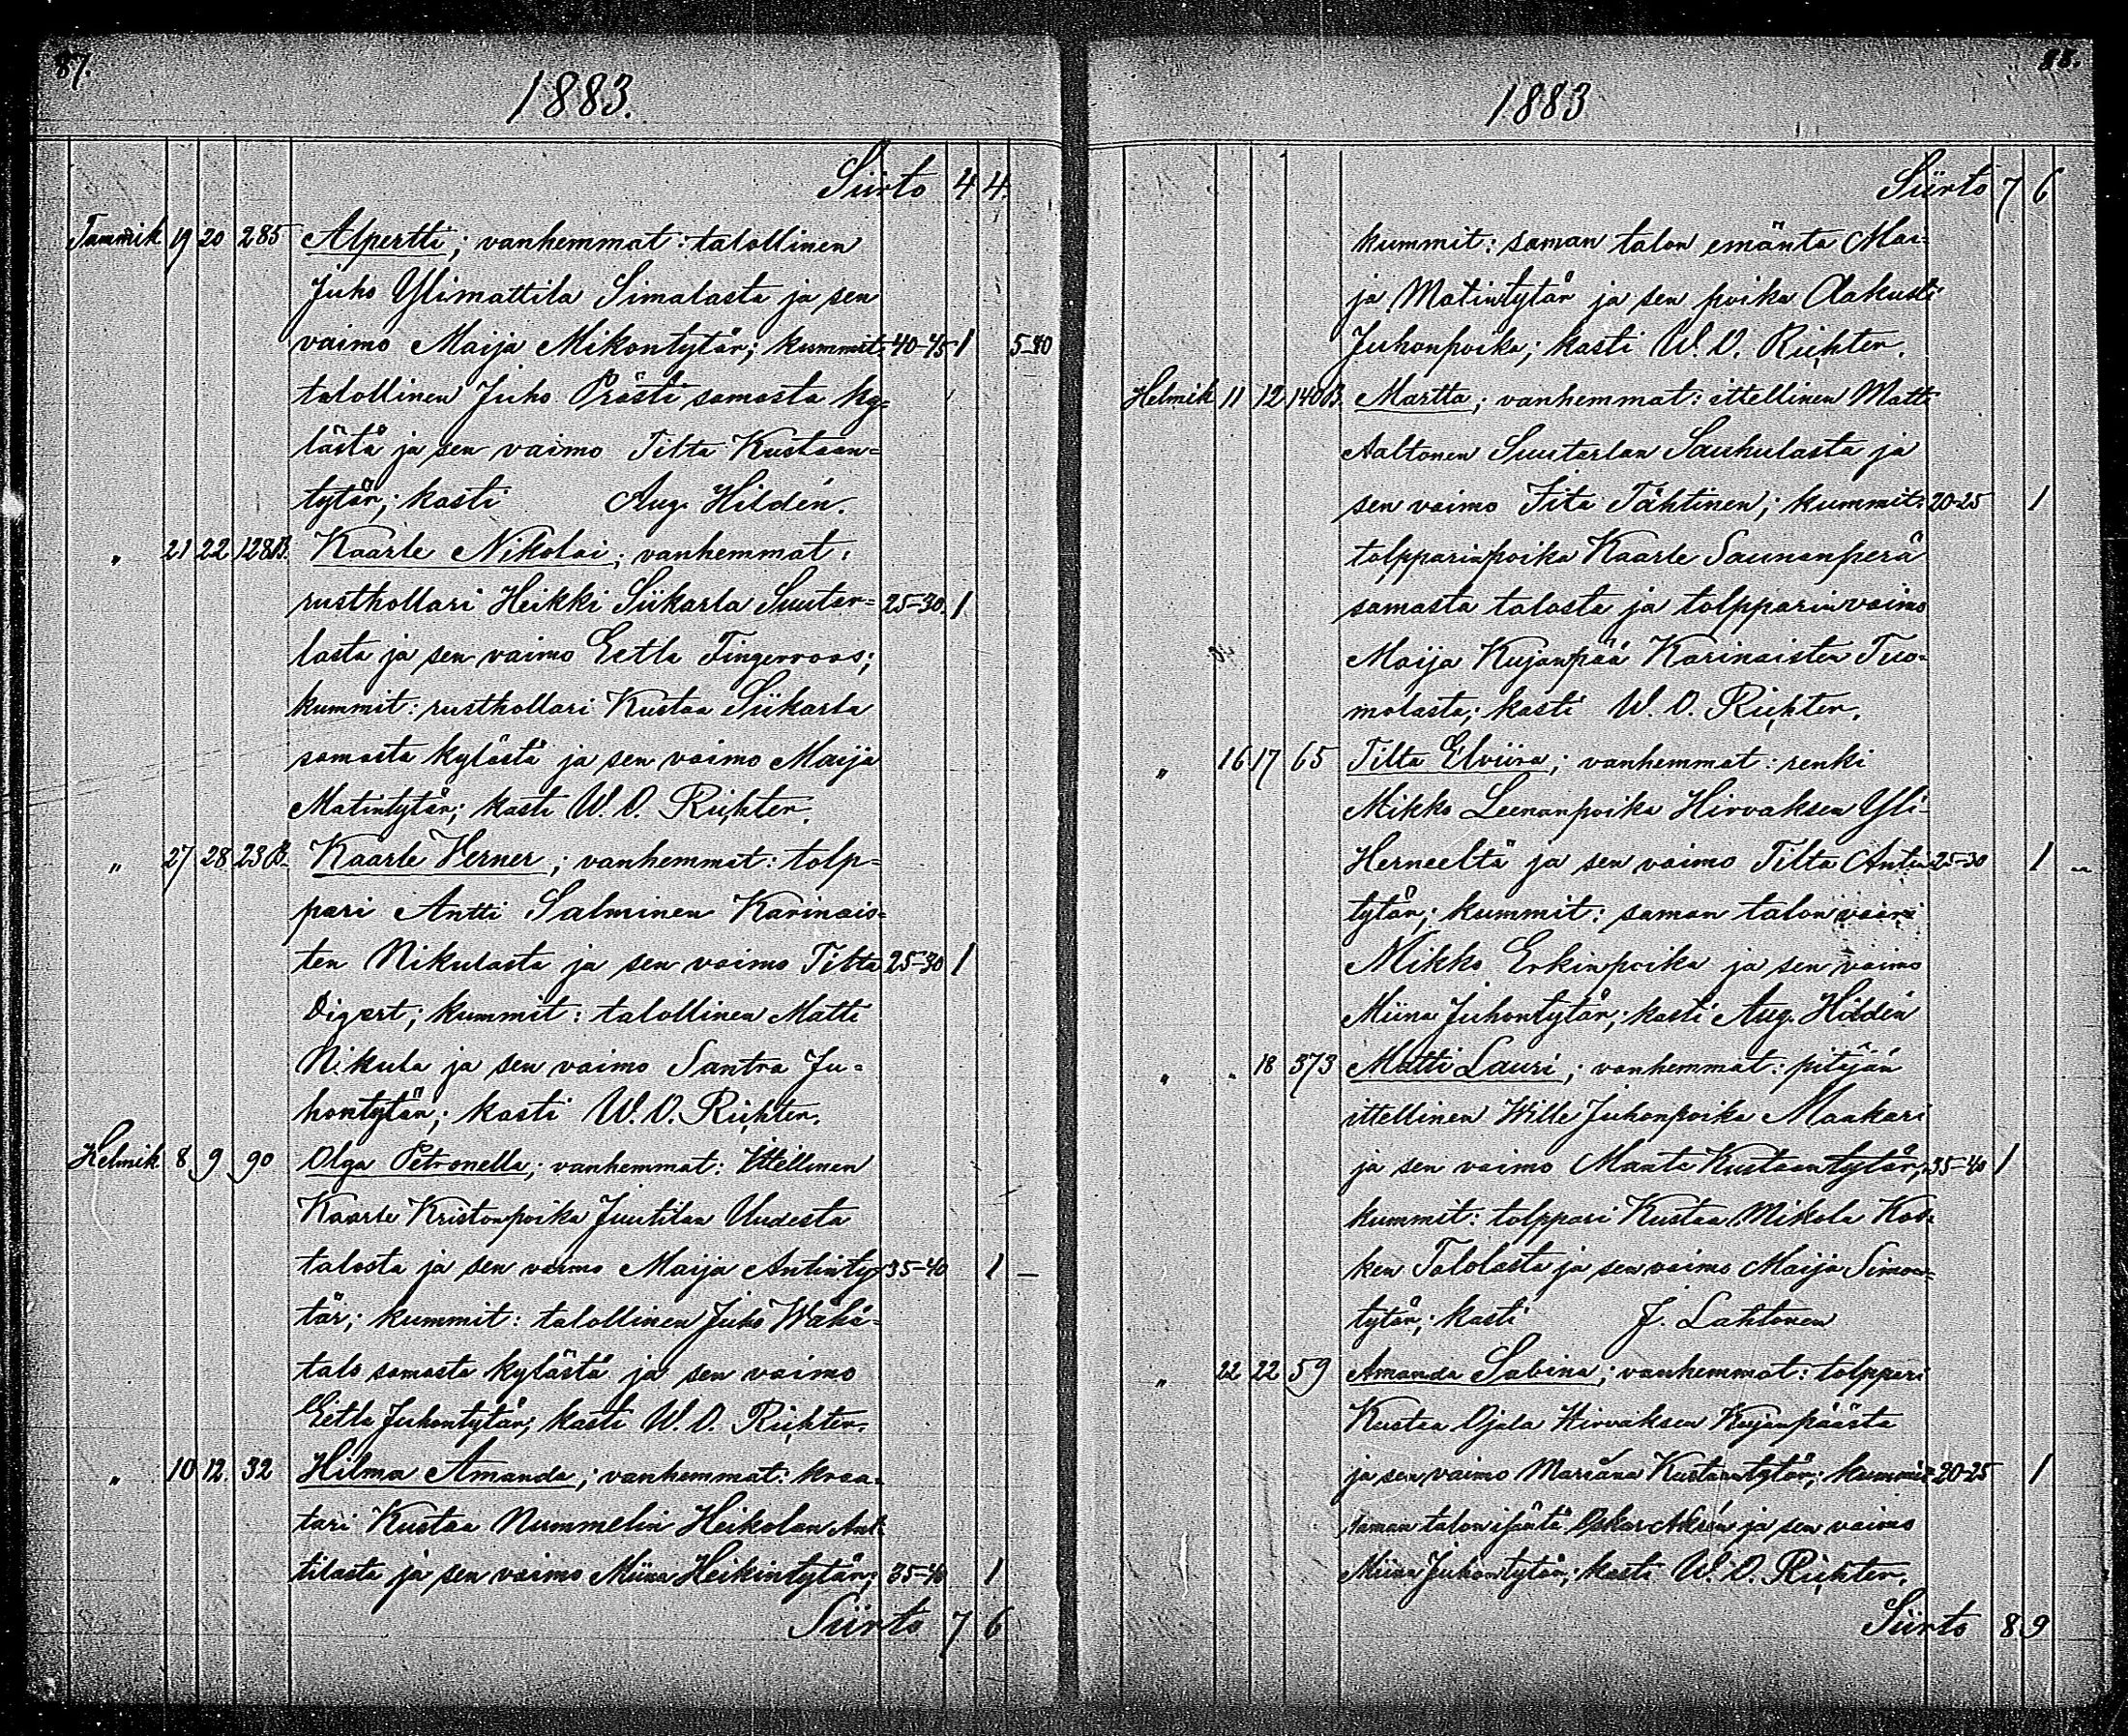 87.
1883.
Siirto 4 4.
Tammik 19 20 285 Alpertti; vanhemmat: talollinen
Juho Ylimattila Simalasta ja sen
vaimo Maija Mikontytär; kummit: 40-45 1 5-40
talollinen Juho Prästi samasta ky=
lästä ja sen vaimo Tilta Kustaan=
tytär; kasti Aug. Hildén.
" 21 22 128B. Kaarle Nikolai; vanhemmat:
rusthollari Heikki Siikarla Suutar= 25-30. 1
lasta ja sen vaimo Eetla Fingerroos;
kummit: rusthollari Kustaa Siikarla
samasta kylästä ja sen vaimo Maija
Matintytär; kasti W. O. Richter.
" 27 28 23B. Kaarle Verner; vanhemmat: tolp=
pari Antti Salminen Karinais=
ten Nikulasta ja sen vaimo Tilta 25-30 1
Digert; kummit: talollinen Matti
Nikula ja sen vaimo Santra Ju=
hontytär; kasti W. O. Richter.
Helmik 8 9 90 Olga Petronella; vanhemmat: Ittellinen
Kaarle Kristonpoika Juutilan Uudesta
talosta ja sen vaimo Maija Antinty= 35-40 1 —
tär; kummit: talollinen Juho Wähä=
talo samasta kylästä ja sen vaimo
Eetla Juhontytär; kasti W. O. Richter.
" 10 12. 32 Hilma Amanda; vanhemmat: kraa=
tari Kustaa Nummelin Heikolan Ant=
tilasta ja sen vaimo Miina Heikintytär; 35-40 1
Siirto 7 6
88.
1883
Siirto 7 6
kummit: saman talon emäntä Mai=
ja Matintytär ja sen poika Aakusti
Juhonpoika; kasti W. O. Richter.
Helmik 11 12 140B. Martta; vanhemmat: ittellinen Matti
Aaltonen Suutarlan Saukulasta ja
sen vaimo Fita Tähtinen; kummit: 20-25 1
tolpparinpoika Kaarle Saunanperä
samasta talosta ja tolpparinvaimo
Maija Kujanpää Karinaisten Tuo=
molasta; kasti W. O. Richter.
" 16 17 65 Tilta Elviira; vanhemmat: renki
Mikko Leenanpoika Hirvaksen Yli=
Herneeltä ja sen vaimo Tilta Antin 25-30 1
tytär; kummit: saman talon vaari
Mikko Erkinpoika ja sen vaimo
Miina Juhontytär; kasti Aug. Hildén
" " 18 373 Matti Lauri; vanhemmat: pitäjän
ittellinen Wille Juhonpoika Maakari
ja sen vaimo Manta Kustaantytär; 35-40 1
kummit: tolppari Kustaa Mikola Kos=
ken Talolasta ja sen vaimo Maija Simon=
tytär; kasti J. Lahtonen
" 22 22 59 Amanda Sabina; vanhemmat: tolppari
Kustaa Ojala Hirvaksen Kujanpäästä
ja sen vaimo Mariana Kustaantytär; kummit: 20-25 1
saman talon isäntä Oskar Akrén ja sen vaimo
Miina Juhontytär; kasti W. O. Richter.
Siirto 8 9